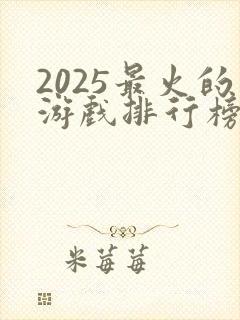 2025最火的
游戏排行榜
米莓莓